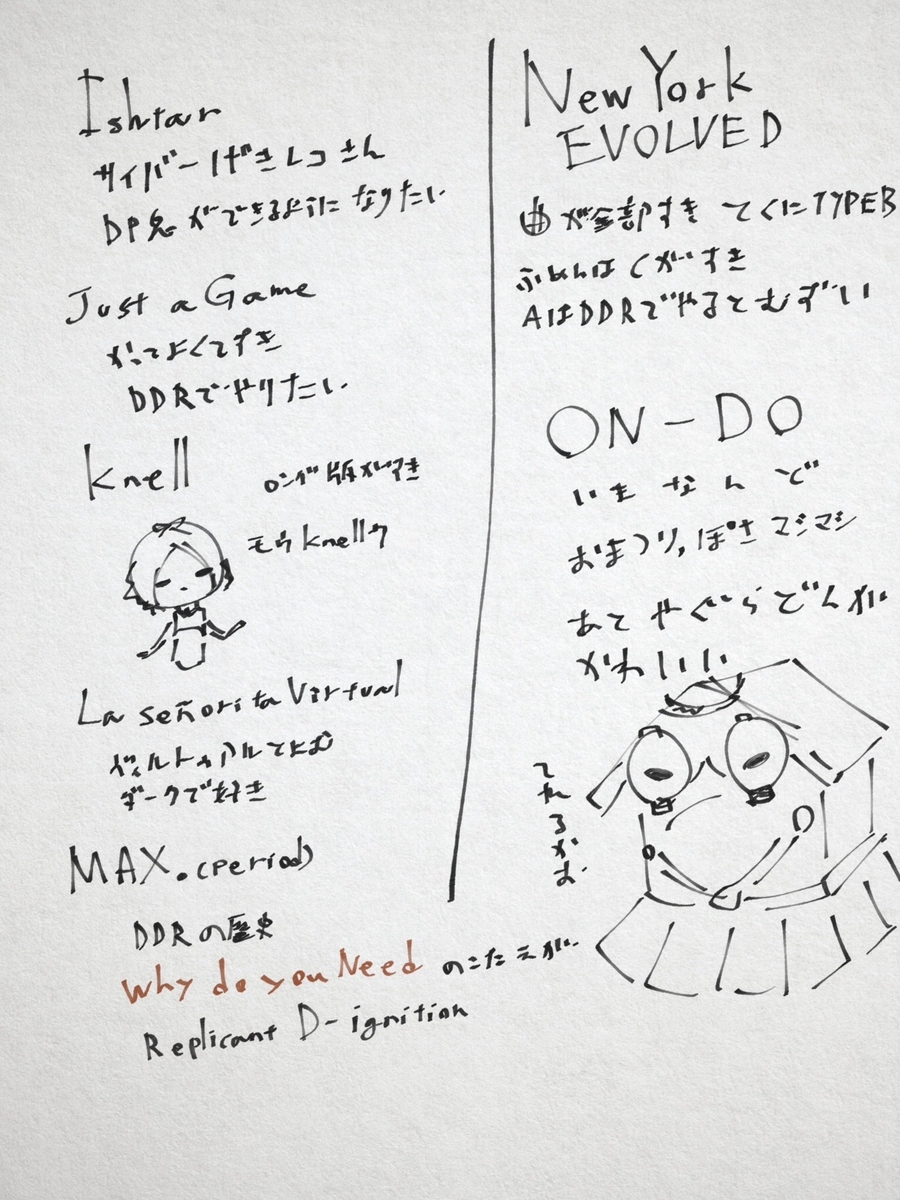 Ishtar
サイバーげきレコさん
DP鬼ができるようになりたい
Just a Game
かっこよくてすき
DDRでやりたい
knell
ロング版がすき
モウknellゥ
La señorita Virtual
ヴィルトゥアルてよむ
ダークで好き
MAX.(period)
DDRの歴史
Why do you Need のこたえが
Replicant D-ignition
New York
EVOLVED
曲が全部すき とくにTYPEB
ふめんはCがすき
AはDDRでやるとむずい
ON-DO
いまなんで
おまつりっぽさマシマシ
あと やぐらどんが
かわいい